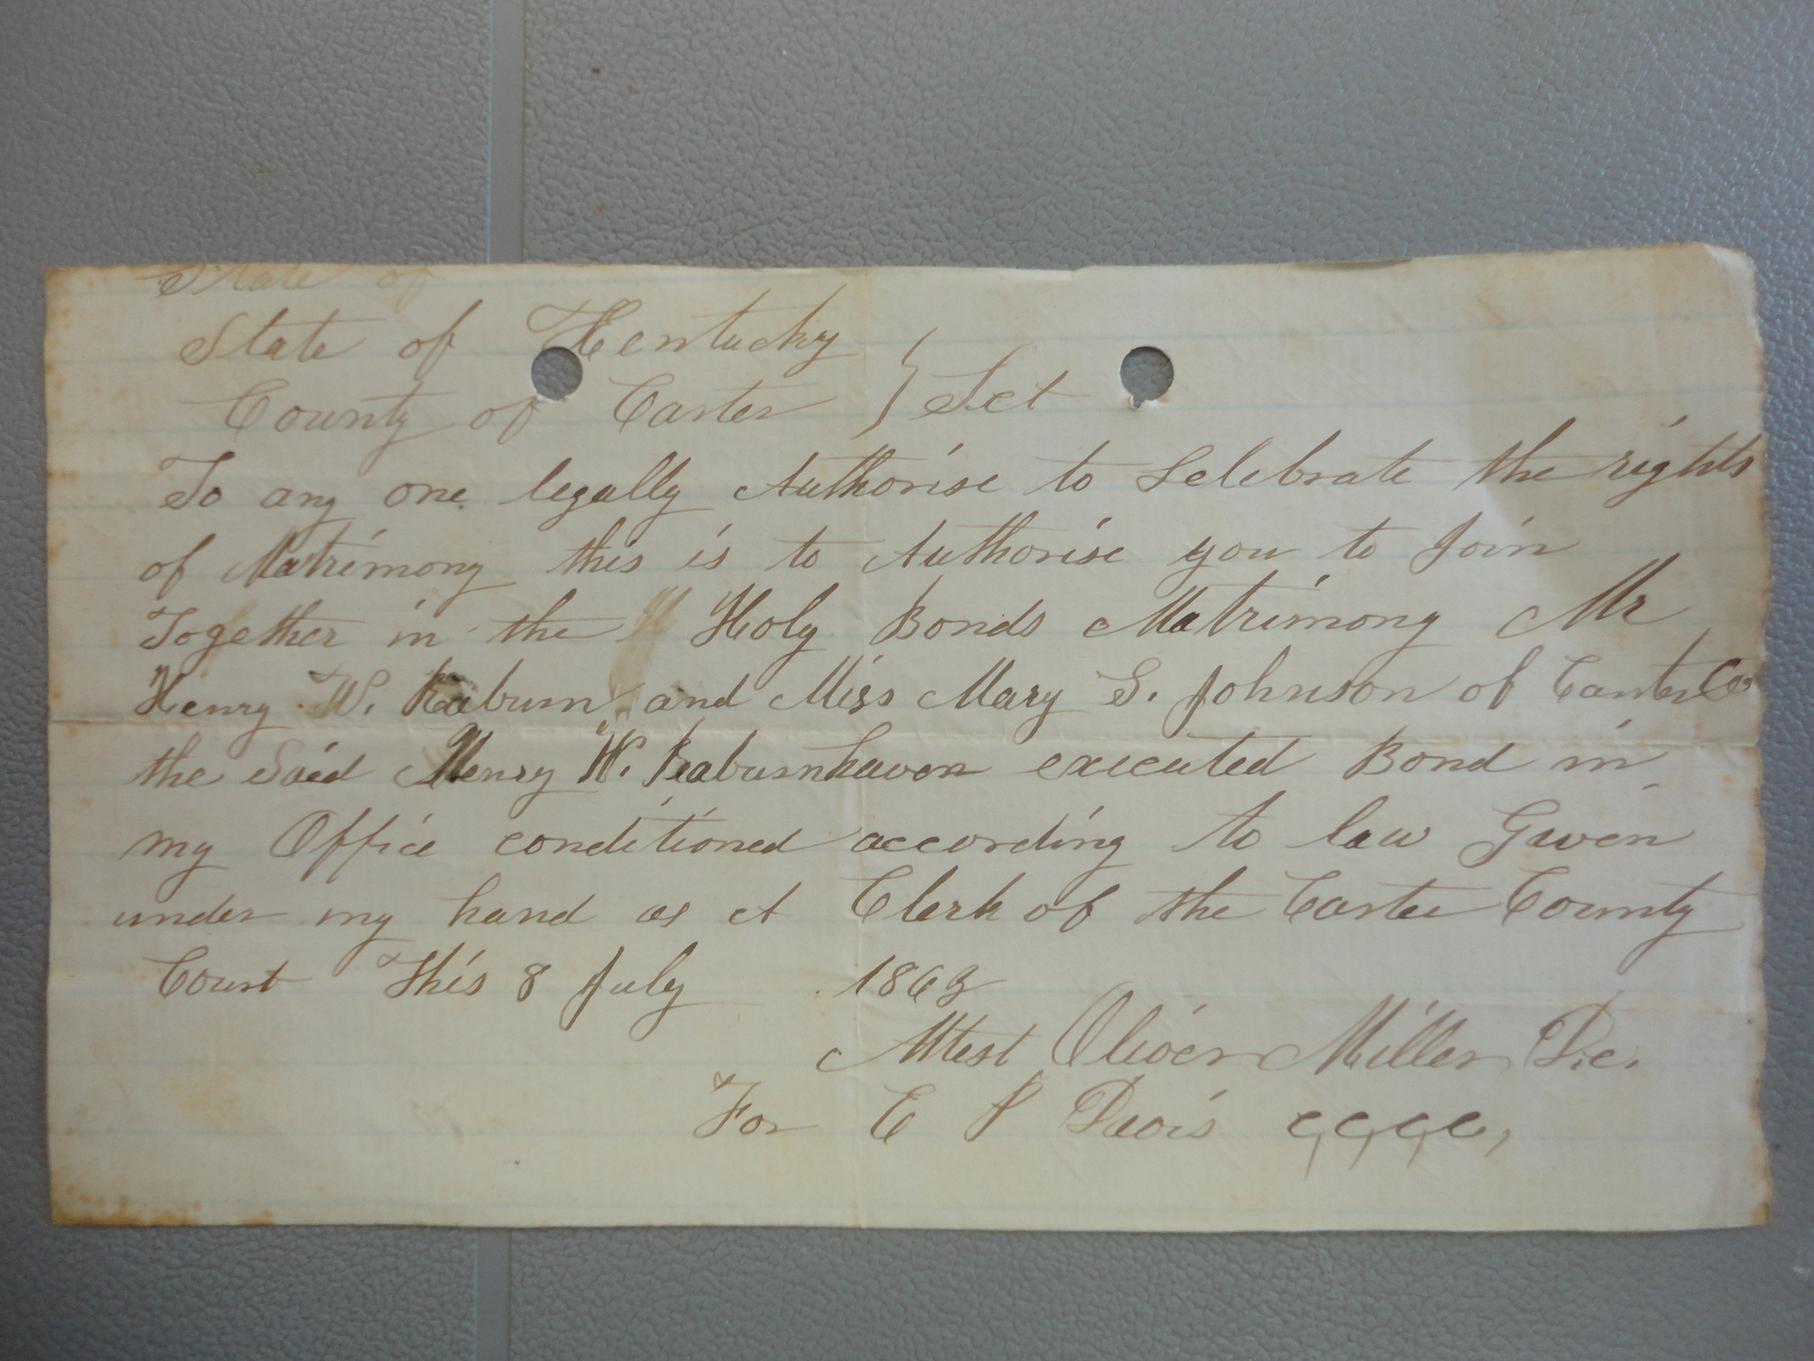 State of
State of Kentucky
County of Carter } Sct
To any one legally Authorise to Selebrate the rights
of Matrimony this is to Authorise you to Join
Together in the Holy Bonds Matrimony Mr
Henry W. Raburn and Miss Mary S. Johnson of Carter Co
the Said Henry W. Raburn haven executed Bond in
my Office conditioned according to law Given
under my hand as Clerk of the Carter County
Court This 8 July 186
Attest Oliver Miller D.c.
For E Davis